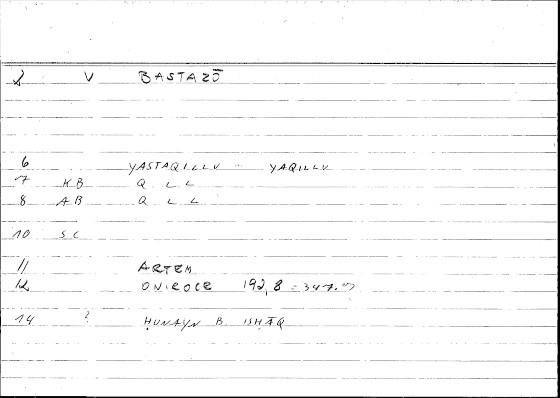 2 V BASTAZŌ
6 YASTAQILLU - YAQILLU
7 KB Q L L
8 AB Q L L
10 SC
11 ARTEM
12 ONIROCR 192,8 = 347.
14 ? ḤUNAYN B. ISḤĀQ